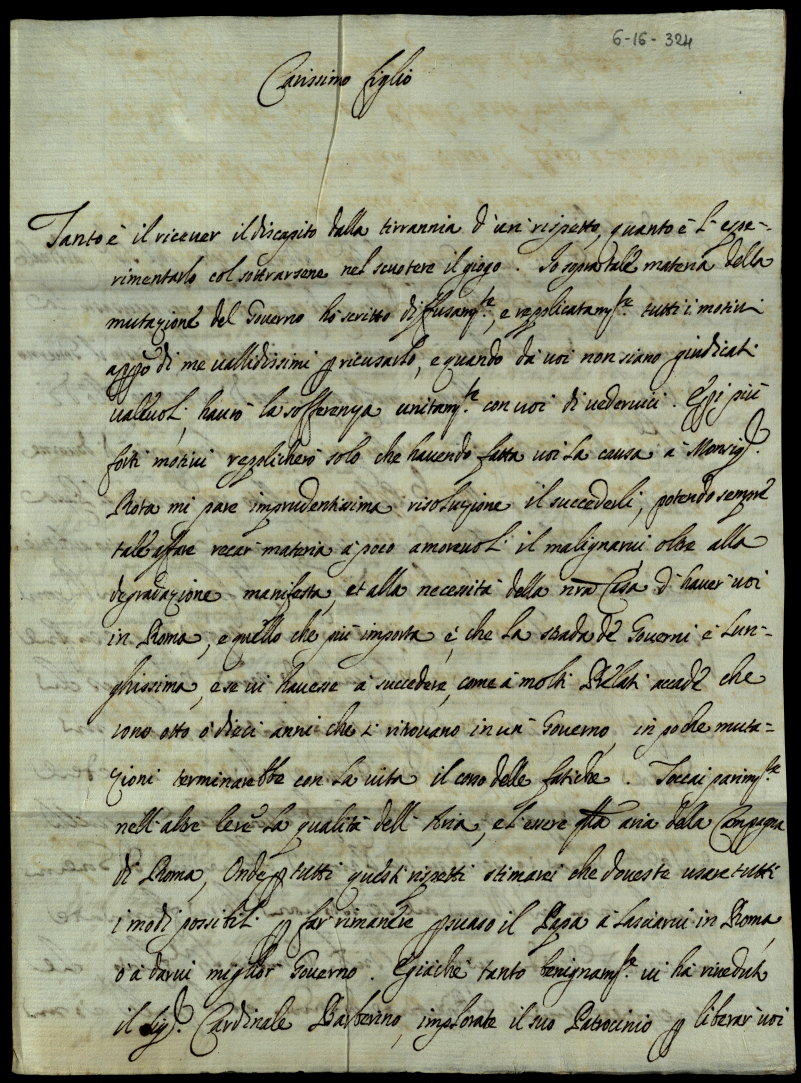 6-16-324
Carissimo figlio
Tanto è il riceuer il discapito dalla tirrannia d'un rispetto, quanto è l'espe-
rimentarlo col sottrarsene nel scuotere il giogo. Io sopra tale materia della
mutazione del Gouerno hò scritto diffusamte, e repplicatamte tutti i motiui
appo di me uallidissimi p ricusarlo, e quando dà uoi non siano giudicati
ualeuoli, haurò la sofferenza unitamte con uoi di uederuici. E pi più
forti motiui repplicherò solo che hauendo fatta uoi la causa à Monsigr
Rota mi pare imprudentissima risoluzione il succederli, potendo sempre
tale affare recar materia à poco amoreuoli il malignarui oltre alla
degradazione manifesta, et alla necessità della nra Casa d'hauer uoi
in Roma, e quello che più importa è, che la strada de Gouerni è lun-
ghissima, e se ui hauesse à succedere, come à molti Prelati accade che
sono otto ò dieci anni che si ritrouano in un Gouerno, in poche muta-
zioni terminarebbe con la uita il corso delle fatiche. Toccai parimte
nell'altre lere la qualità dell'Aria, et essere qsta aria della Campagna
di Roma, Onde p tutti questi rispetti stimarei che doueste usare tutti
i modi possibili p far rimanere psuaso il Papa à lasciarui in Roma,
ò à darui miglior Gouerno. E giache tanto benignamte ui hà riueduti
il Sigr Cardinale Barberino, implorate il suo Patrocinio p liberar uoi